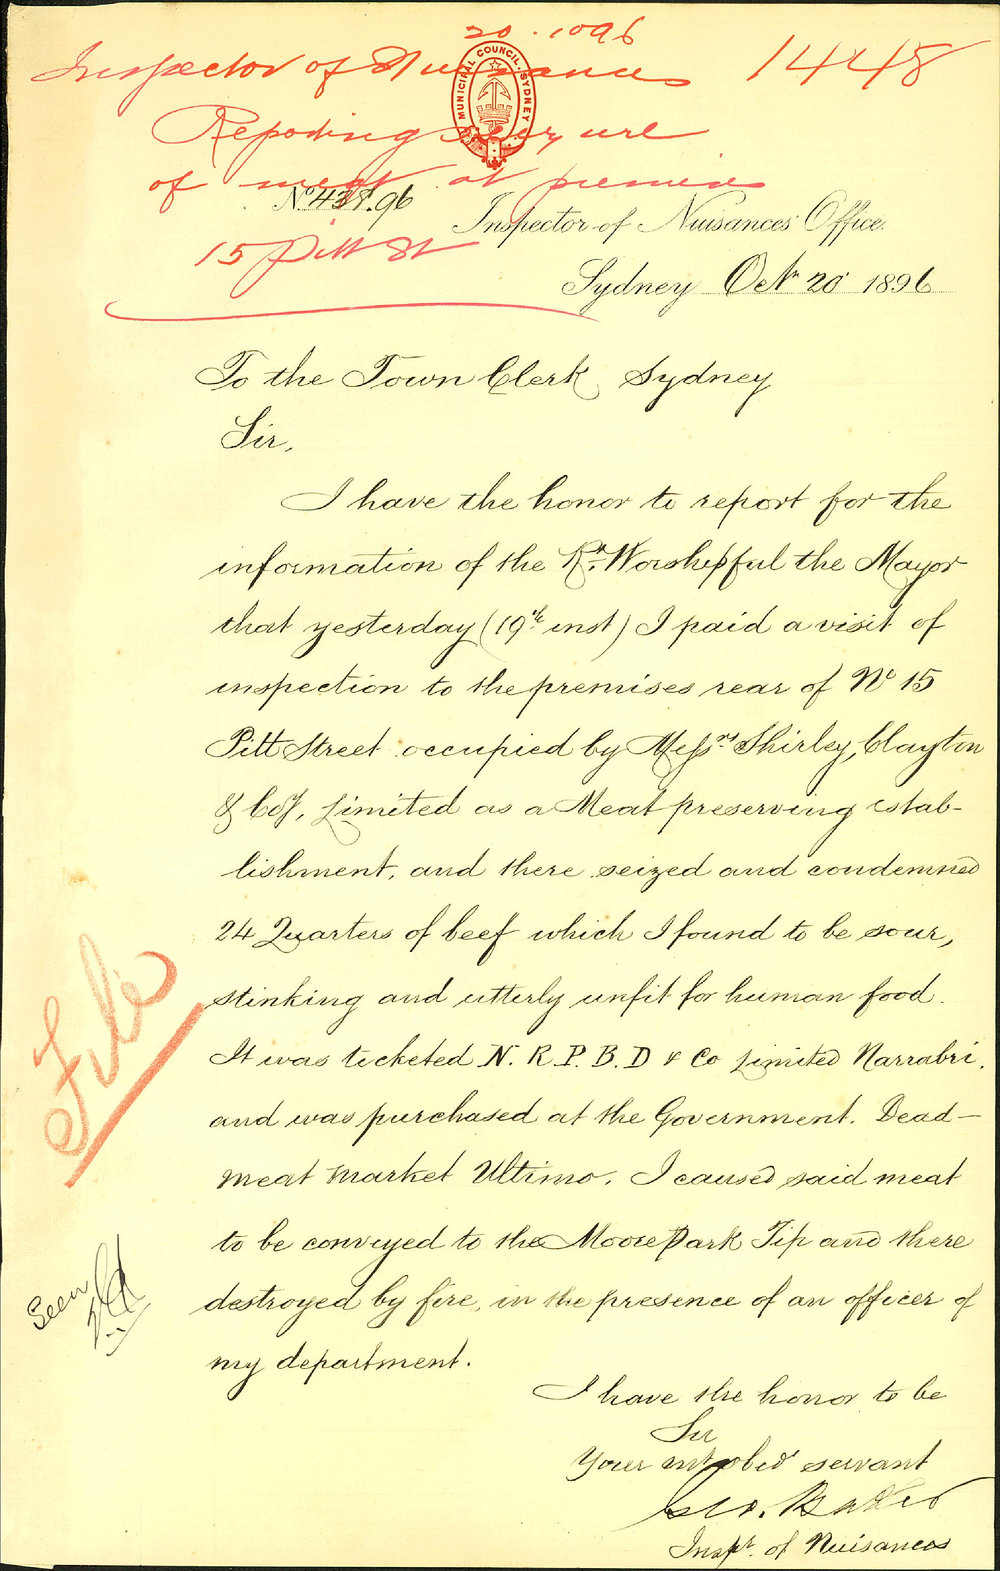 20.10 96
Inspector of Nuisances 1448
MUNICIPAL COUNCIL. SYDNEY
Reporting seizure
of meat at premises
15 Pitt St
No 438.96
Inspector of Nuisances' Office.
Sydney Octr 20 1896
To the Town Clerk, Sydney
Sir,
I have the honor to report for the
information of the Rt. Worshipful the Mayor
that yesterday (19th inst) I paid a visit of
inspection to the premises rear of No 15
Pitt Street occupied by Messrs Shirley, Clayton
& Coy, Limited as a Meat preserving estab-
lishment, and there seized and condemned
24 Quarters of beef which I found to be sour,
stinking and utterly unfit for human food.
It was ticketed N. R. P. B. D & Co Limited Narrabri.
and was purchased at the Government. Dead-
meat market Ultimo. I caused said meat
to be conveyed to the Moore Park Tip and there
destroyed by fire, in the presence of an officer of
my department.
I have the honor to be
Sir
Your mt obed servant
Geo. Baker
Inspr. of Nuisances
File
Seen